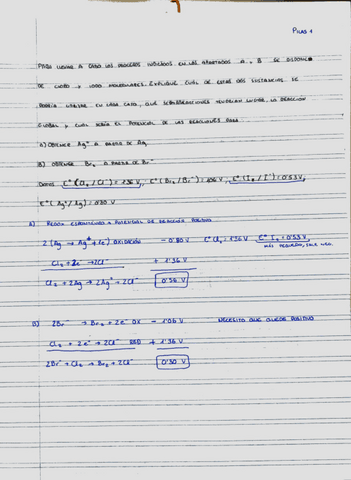 PILAS 1
PARA LLEVAR A CABO LOS PROCESOS INDICADOS EN LOS APARTADOS A y B SE DISPONE
DE CLORO y IODO MOLECULARES. EXPLIQUE CUAL DE ESTAS DOS SUSTANCIAS SE
PODRIA UTILIZAR EN CADA CASO, QUE SEMIRREACCIONES TENDRIAN LUGAR, LA REACCION
GLOBAL y CUAL SERIA EL POTENCIAL DE LAS REACCIONES PARA:
A) OBTENER Ag⁺ A PARTIR DE Ag
B) OBTENER Br₂ A PARTIR DE Br⁻
DATOS E°(Cl₂/Cl⁻)=1'36 V, E°(Br₂/Br⁻)=1'06 V, E°(I₂/I⁻)=0'53 V,
E°(Ag⁺/Ag)=0'80 V
A) REDOX ESPONTANEO → POTENCIAL DE REACCION POSITIVO
2(Ag → Ag⁺ + 1e⁻) OXIDACIÓN - 0'80 V E° Cl₂ = 1'36 V E° I₂ = 0'53 V
MÁS PEQUEÑO, SALE NEG.
Cl₂ + 2e⁻ → 2Cl⁻ + 1'36
Cl₂ + 2Ag → 2Ag⁺ + 2Cl⁻ 0'56 V
B) 2Br⁻ → Br₂ + 2e⁻ OX - 1'06 V NECESITO QUE QUEDE POSITIVO
Cl₂ + 2e⁻ → 2Cl⁻ RED + 1'36 V
2Br⁻ + Cl₂ → Br₂ + 2Cl⁻ 0'30 V